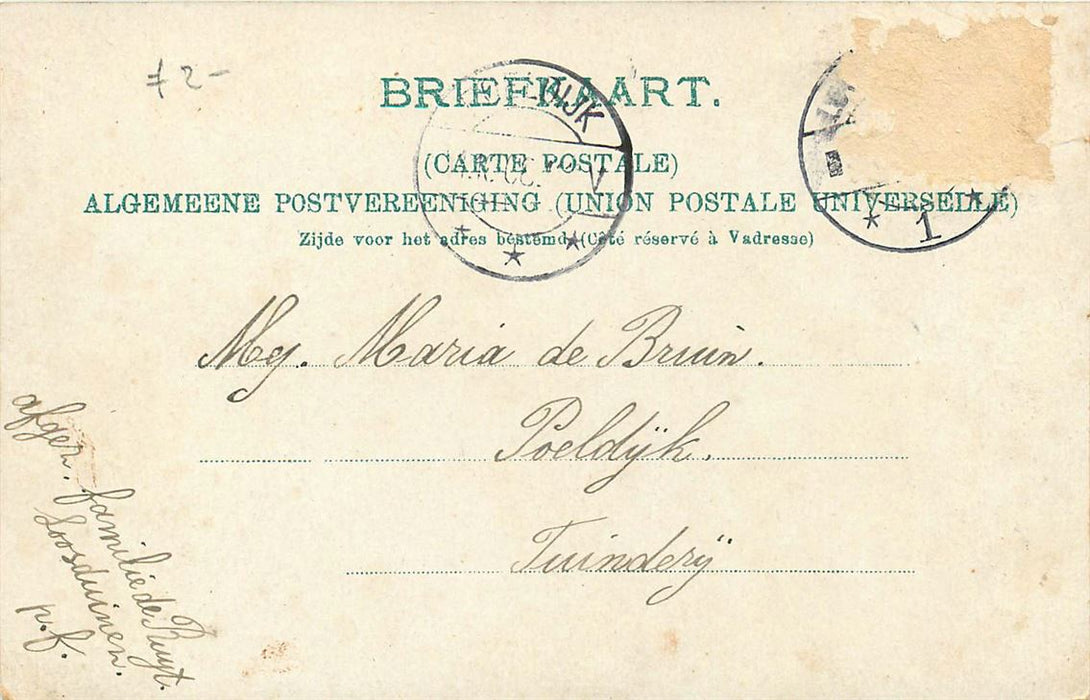 7 2-
BRIEFKAART.
(CARTE POSTALE)
ALGEMEENE POSTVEREENIGING (UNION POSTALE UNIVERSELLE)
Zijde voor het adres bestemd. (Côté réservé à Vadresse)
DIJK
V
1
Mej. Maria de Bruin.
Poeldijk.
Tuinderij
afgez. familie de Ruyt.
Loosduinen.
p.f.